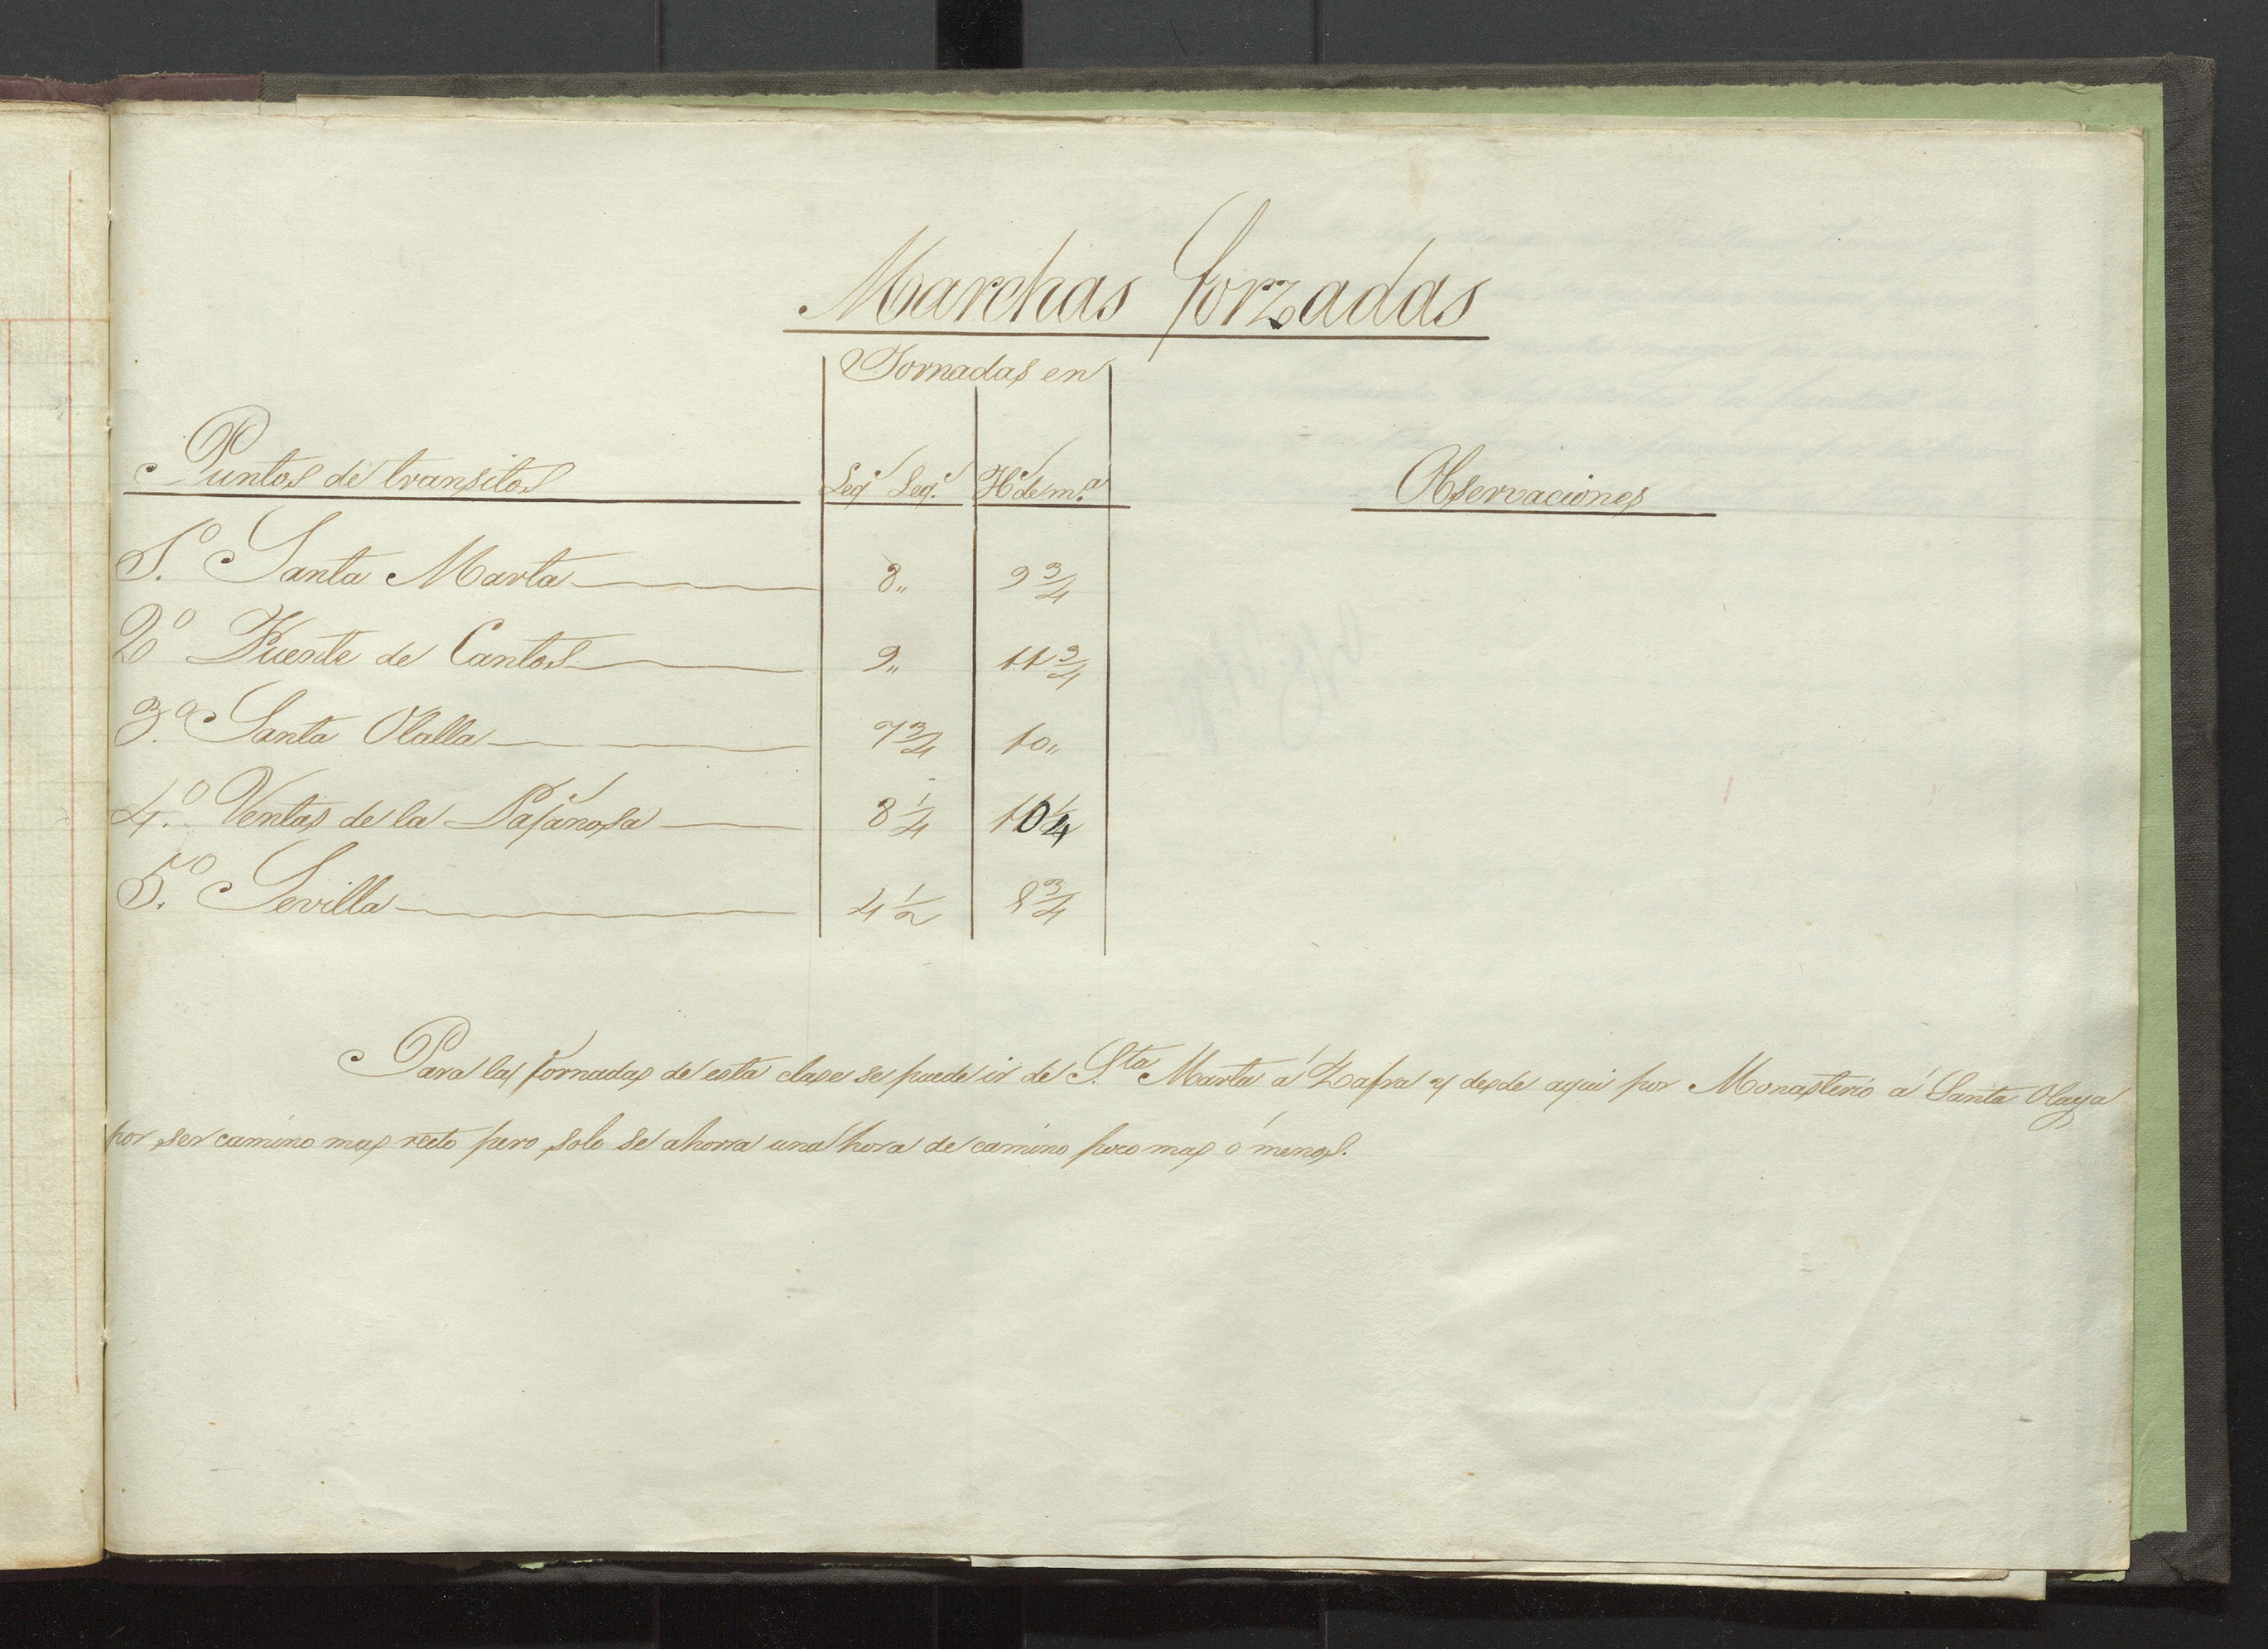 Marchas forzadas
Jornadas en
Puntos de transitos Leg.s Leg.s H.s de m.a Observaciones
1.º Santa Marta 8,, 9 3/4
2º Fuente de Cantos 9,, 11 3/4
3.º Santa Olalla 7 3/4 10,,
4.º Ventas de la Pajanosa 8 1/4 10 1/4
5.º Sevilla 4 1/2 8 3/4
Para las jornadas de esta clase se puede ir de S.ta Marta á Zafra y desde aqui por Monasterio á Santa Olaya
por ser camino mas recto pero solo se ahorra una hora de camino poco mas ó menos.